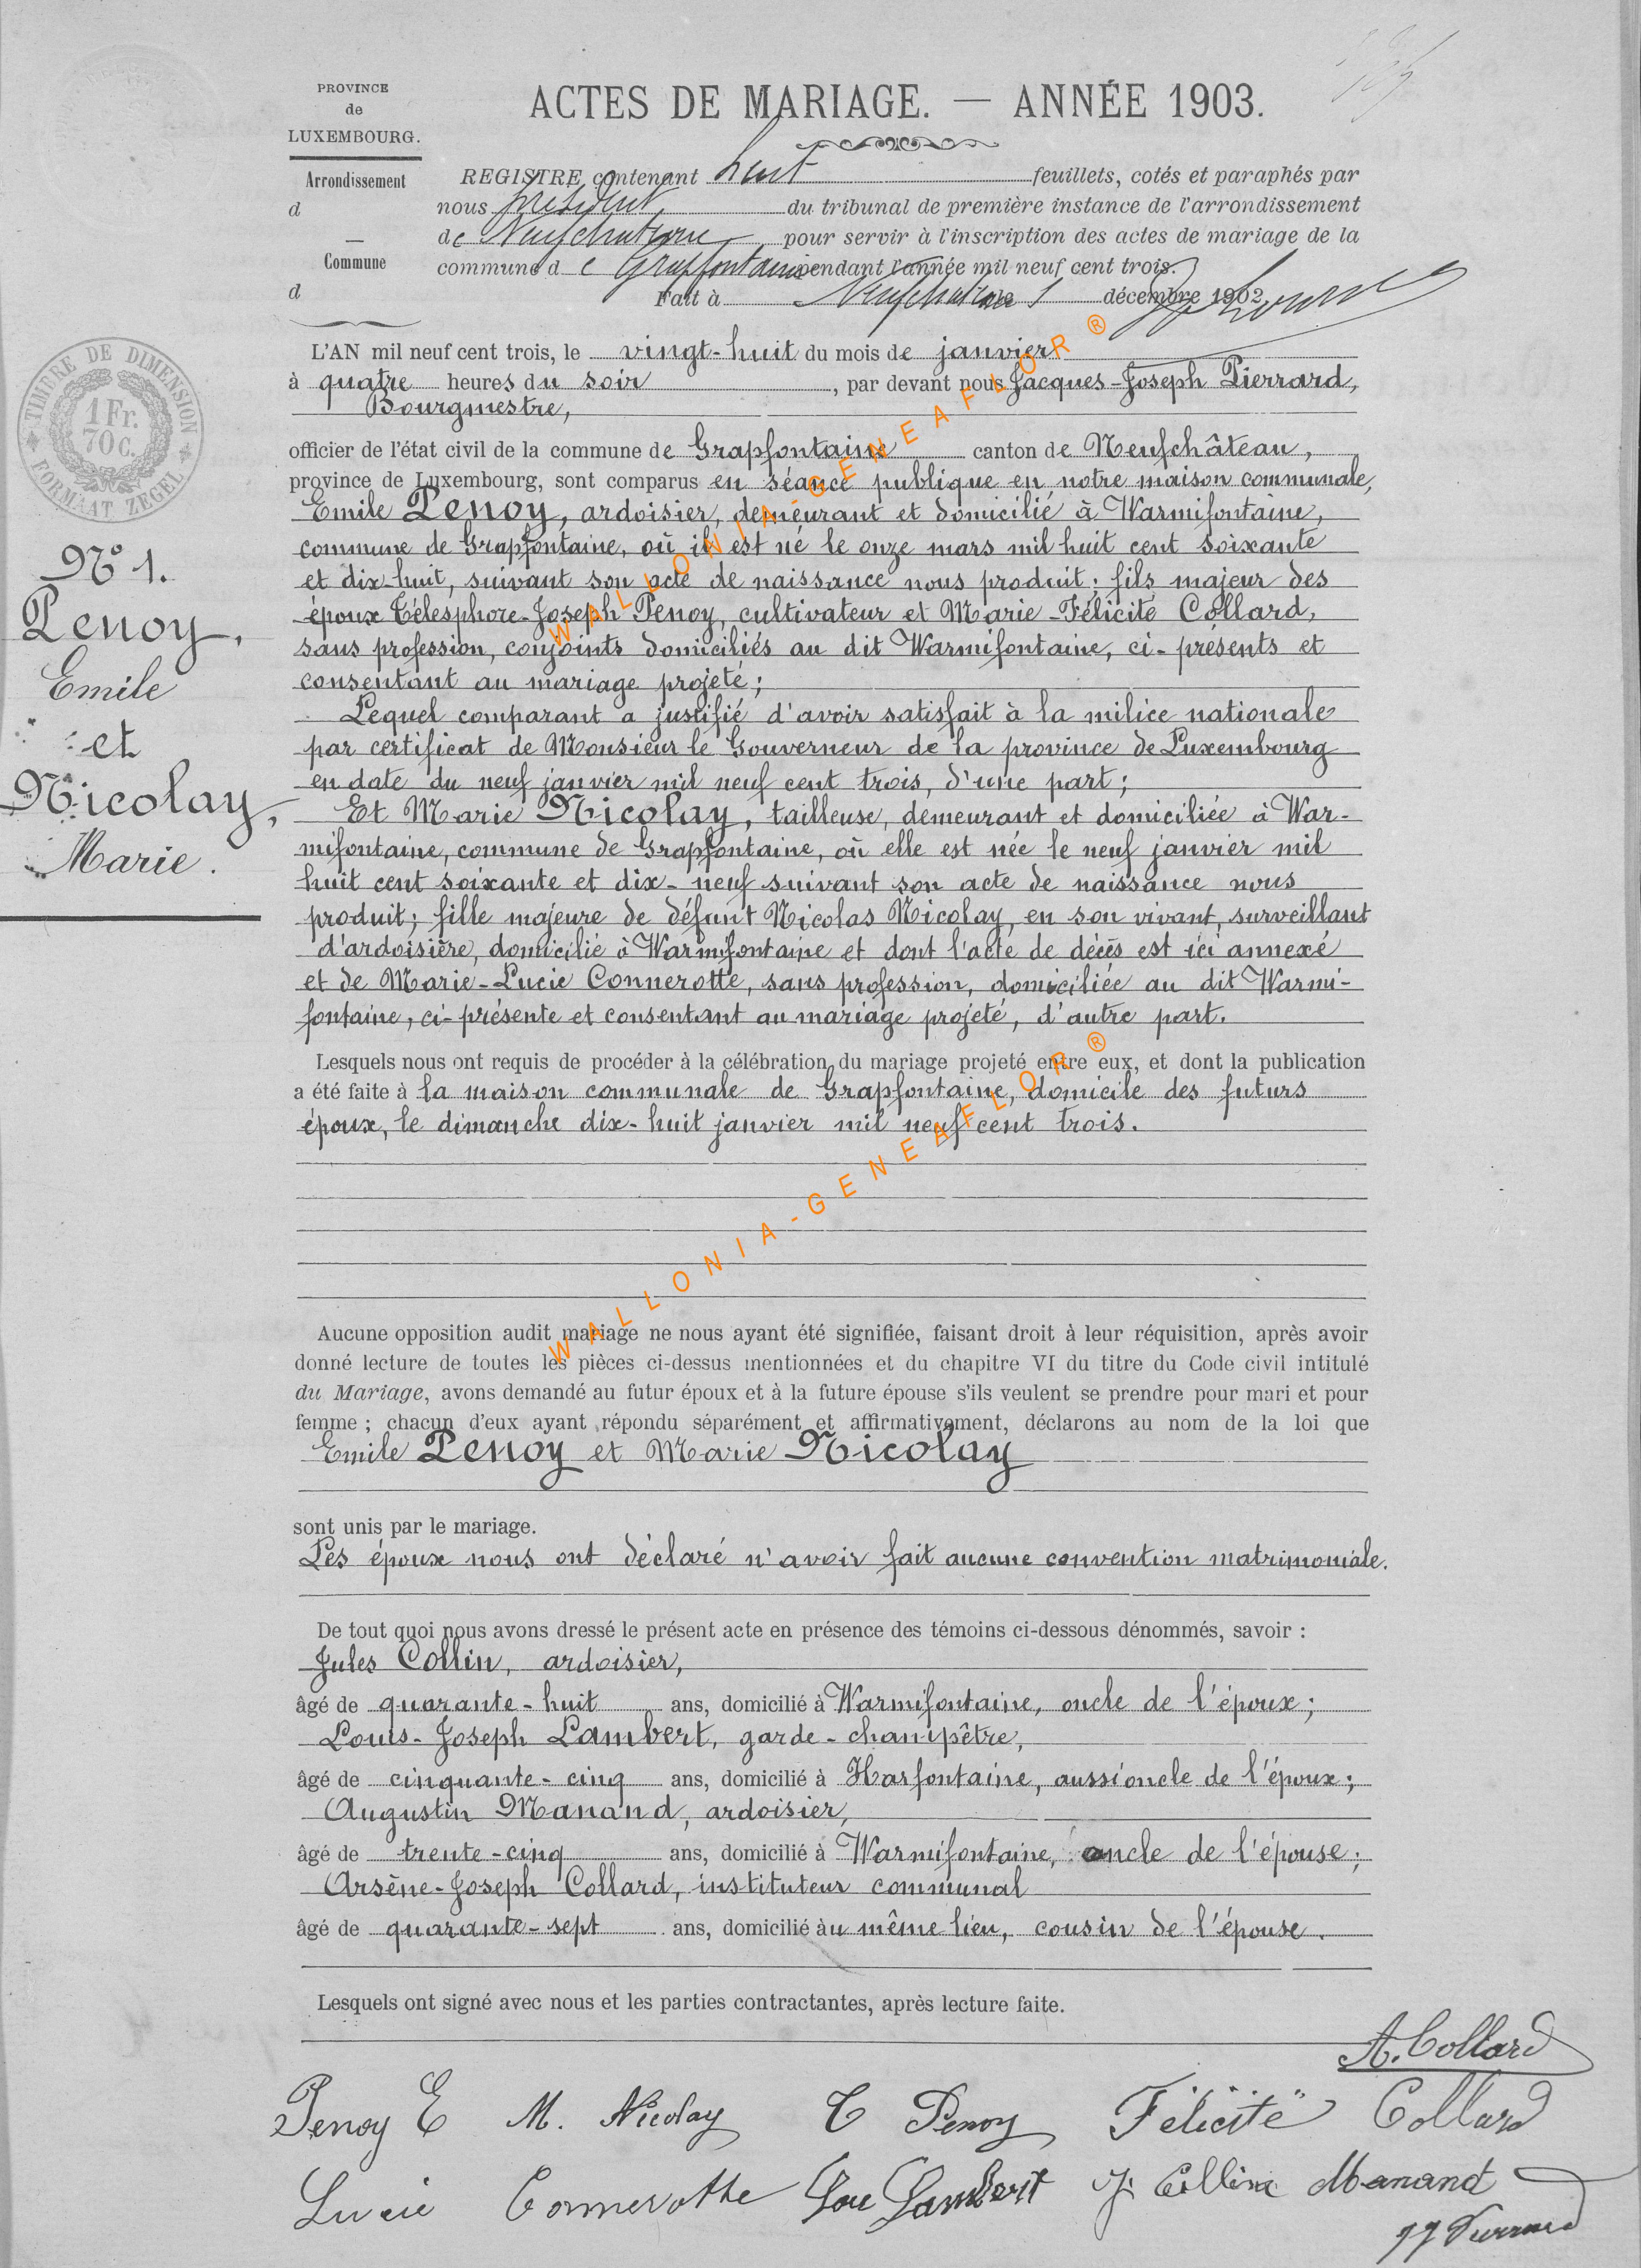 PROVINCE
de
LUXEMBOURG.
Arrondissement
d
Commune
d
ACTES DE MARIAGE. — ANNÉE 1903.
REGISTRE contenant huit feuillets, cotés et paraphés par
nous président du tribunal de première instance de l'arrondissement
de Neufchateau pour servir à l'inscription des actes de mariage de la
commune de Grapfontaine pendant l'année mil neuf cent trois.
Fait à Neufchateau le 1 décembre 1902
TIMBRE DE DIMENSION
1 Fr.
70 C.
FORMAAT ZEGEL
L'AN mil neuf cent trois, le vingt-huit du mois de janvier
à quatre heures du soir, par devant nous Jacques-Joseph Pierrard,
Bourgmestre,
officier de l'état civil de la commune de Grapfontaine canton de Neufchâteau,
province de Luxembourg, sont comparus en séance publique en notre maison communale,
Emile Penoy, ardoisier, demeurant et domicilié à Warmifontaine,
commune de Grapfontaine, où il est né le onze mars mil huit cent soixante
et dix-huit, suivant son acte de naissance nous produit; fils majeur des
époux Télesphore-Joseph Penoy, cultivateur et Marie-Félicité Collard,
sans profession, conjoints domiciliés au dit Warmifontaine, ci-présents et
consentant au mariage projeté;
Lequel comparant a justifié d'avoir satisfait à la milice nationale
par certificat de Monsieur le Gouverneur de la province de Luxembourg
en date du neuf janvier mil neuf cent trois, d'une part;
Et Marie Nicolay, tailleuse, demeurant et domiciliée à War-
mifontaine, commune de Grapfontaine, où elle est née le neuf janvier mil
huit cent soixante et dix-neuf suivant son acte de naissance nous
produit; fille majeure de défunt Nicolas Nicolay, en son vivant, surveillant
d'ardoisière, domicilié à Warmifontaine et dont l'acte de décès est ici annexé
et de Marie-Lucie Connerotte, sans profession, domiciliée au dit Warmi-
fontaine, ci-présente et consentant au mariage projeté, d'autre part.
N° 1.
Penoy,
Emile
et
Nicolay,
Marie.
Lesquels nous ont requis de procéder à la célébration du mariage projeté entre eux, et dont la publication
a été faite à la maison communale de Grapfontaine, domicile des futurs
époux, le dimanche dix-huit janvier mil neuf cent trois.
Aucune opposition audit mariage ne nous ayant été signifiée, faisant droit à leur réquisition, après avoir
donné lecture de toutes les pièces ci-dessus mentionnées et du chapitre VI du titre du Code civil intitulé
du Mariage, avons demandé au futur époux et à la future épouse s'ils veulent se prendre pour mari et pour
femme ; chacun d'eux ayant répondu séparément et affirmativement, déclarons au nom de la loi que
Emile Penoy et Marie Nicolay
sont unis par le mariage.
Les époux nous ont déclaré n'avoir fait aucune convention matrimoniale.
De tout quoi nous avons dressé le présent acte en présence des témoins ci-dessous dénommés, savoir :
Jules Collin, ardoisier,
âgé de quarante-huit ans, domicilié à Warmifontaine, oncle de l'époux;
Louis-Joseph Lambert, garde-champêtre,
âgé de cinquante-cinq ans, domicilié à Harfontaine, aussi oncle de l'époux;
Augustin Manand, ardoisier,
âgé de trente-cinq ans, domicilié à Warmifontaine, oncle de l'épouse;
Arsène-Joseph Collard, instituteur communal
âgé de quarante-sept ans, domicilié au même lieu, cousin de l'épouse.
Lesquels ont signé avec nous et les parties contractantes, après lecture faite.
A. Collard
Penoy E M. Nicolay T Penoy Félicité Collard
Lucie Connerotte Lambert J. Collin Manand
JJ Pierrard
WALLONIA-GENEAFLOR ®
WALLONIA-GENEAFLOR ®